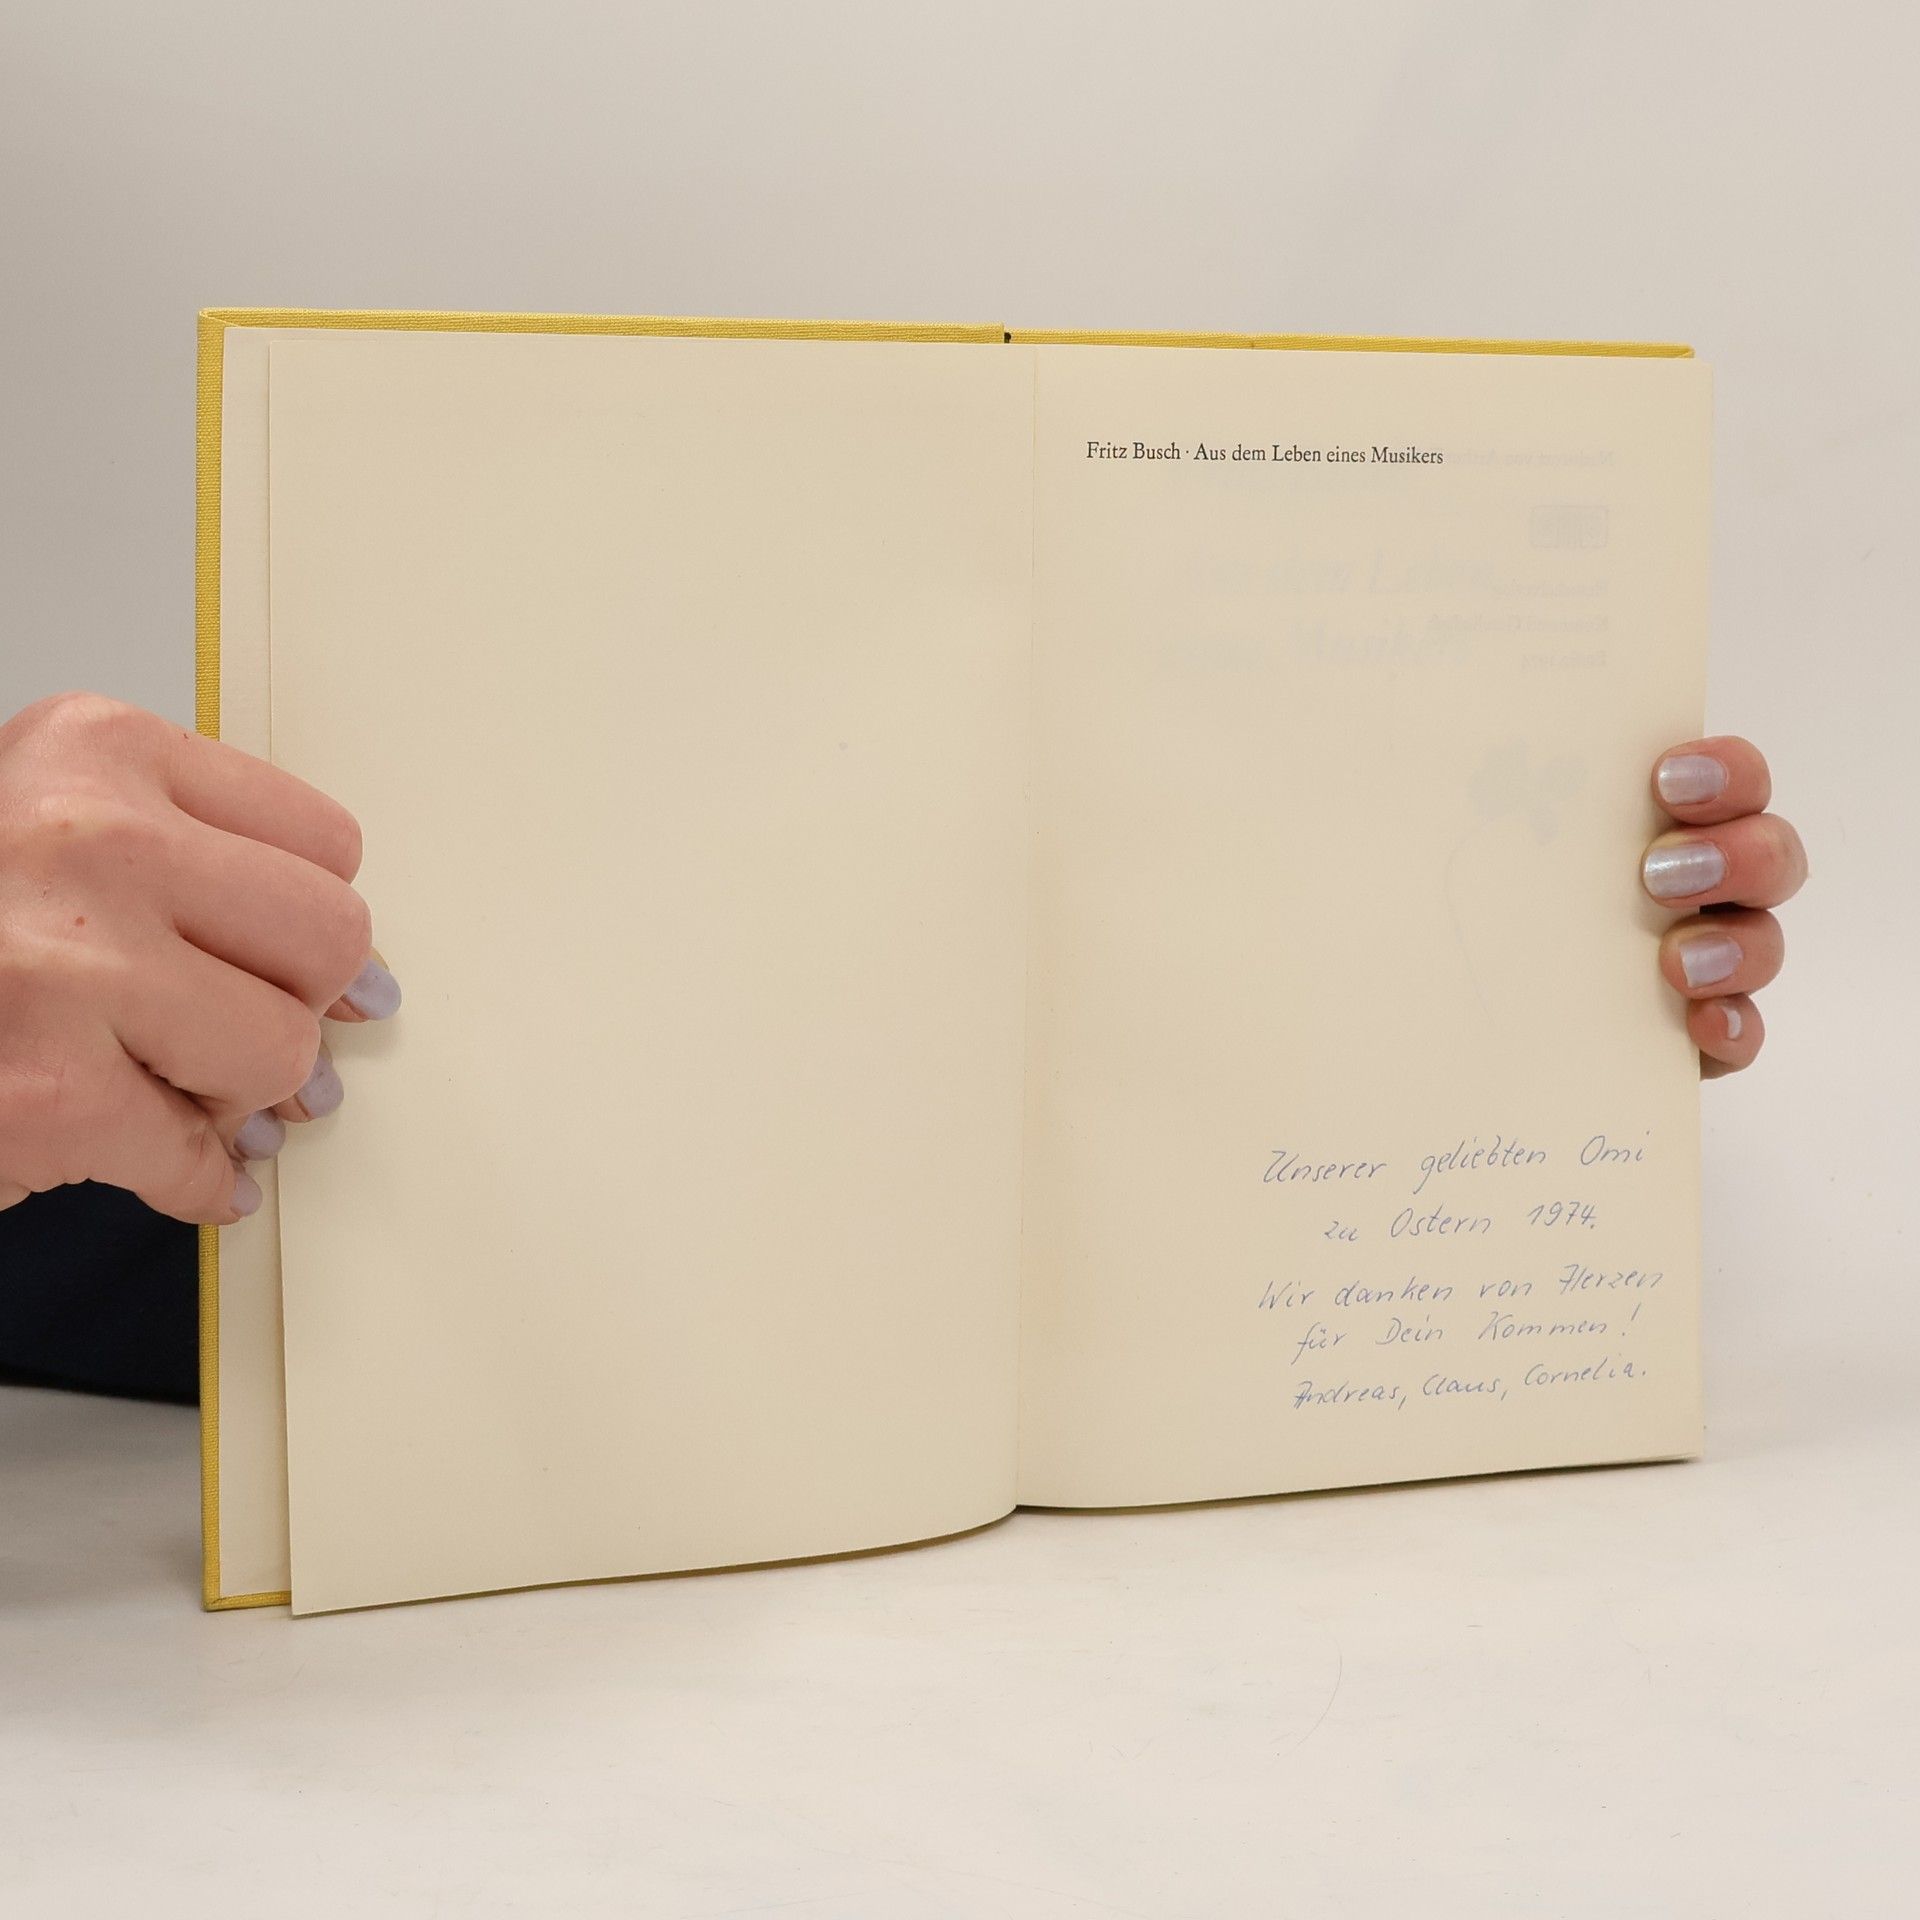 Fritz Busch · Aus dem Leben eines Musikers
Unserer geliebten Omi
zu Ostern 1974.
Wir danken von Herzen
für Dein Kommen!
Andreas, Claus, Cornelia.